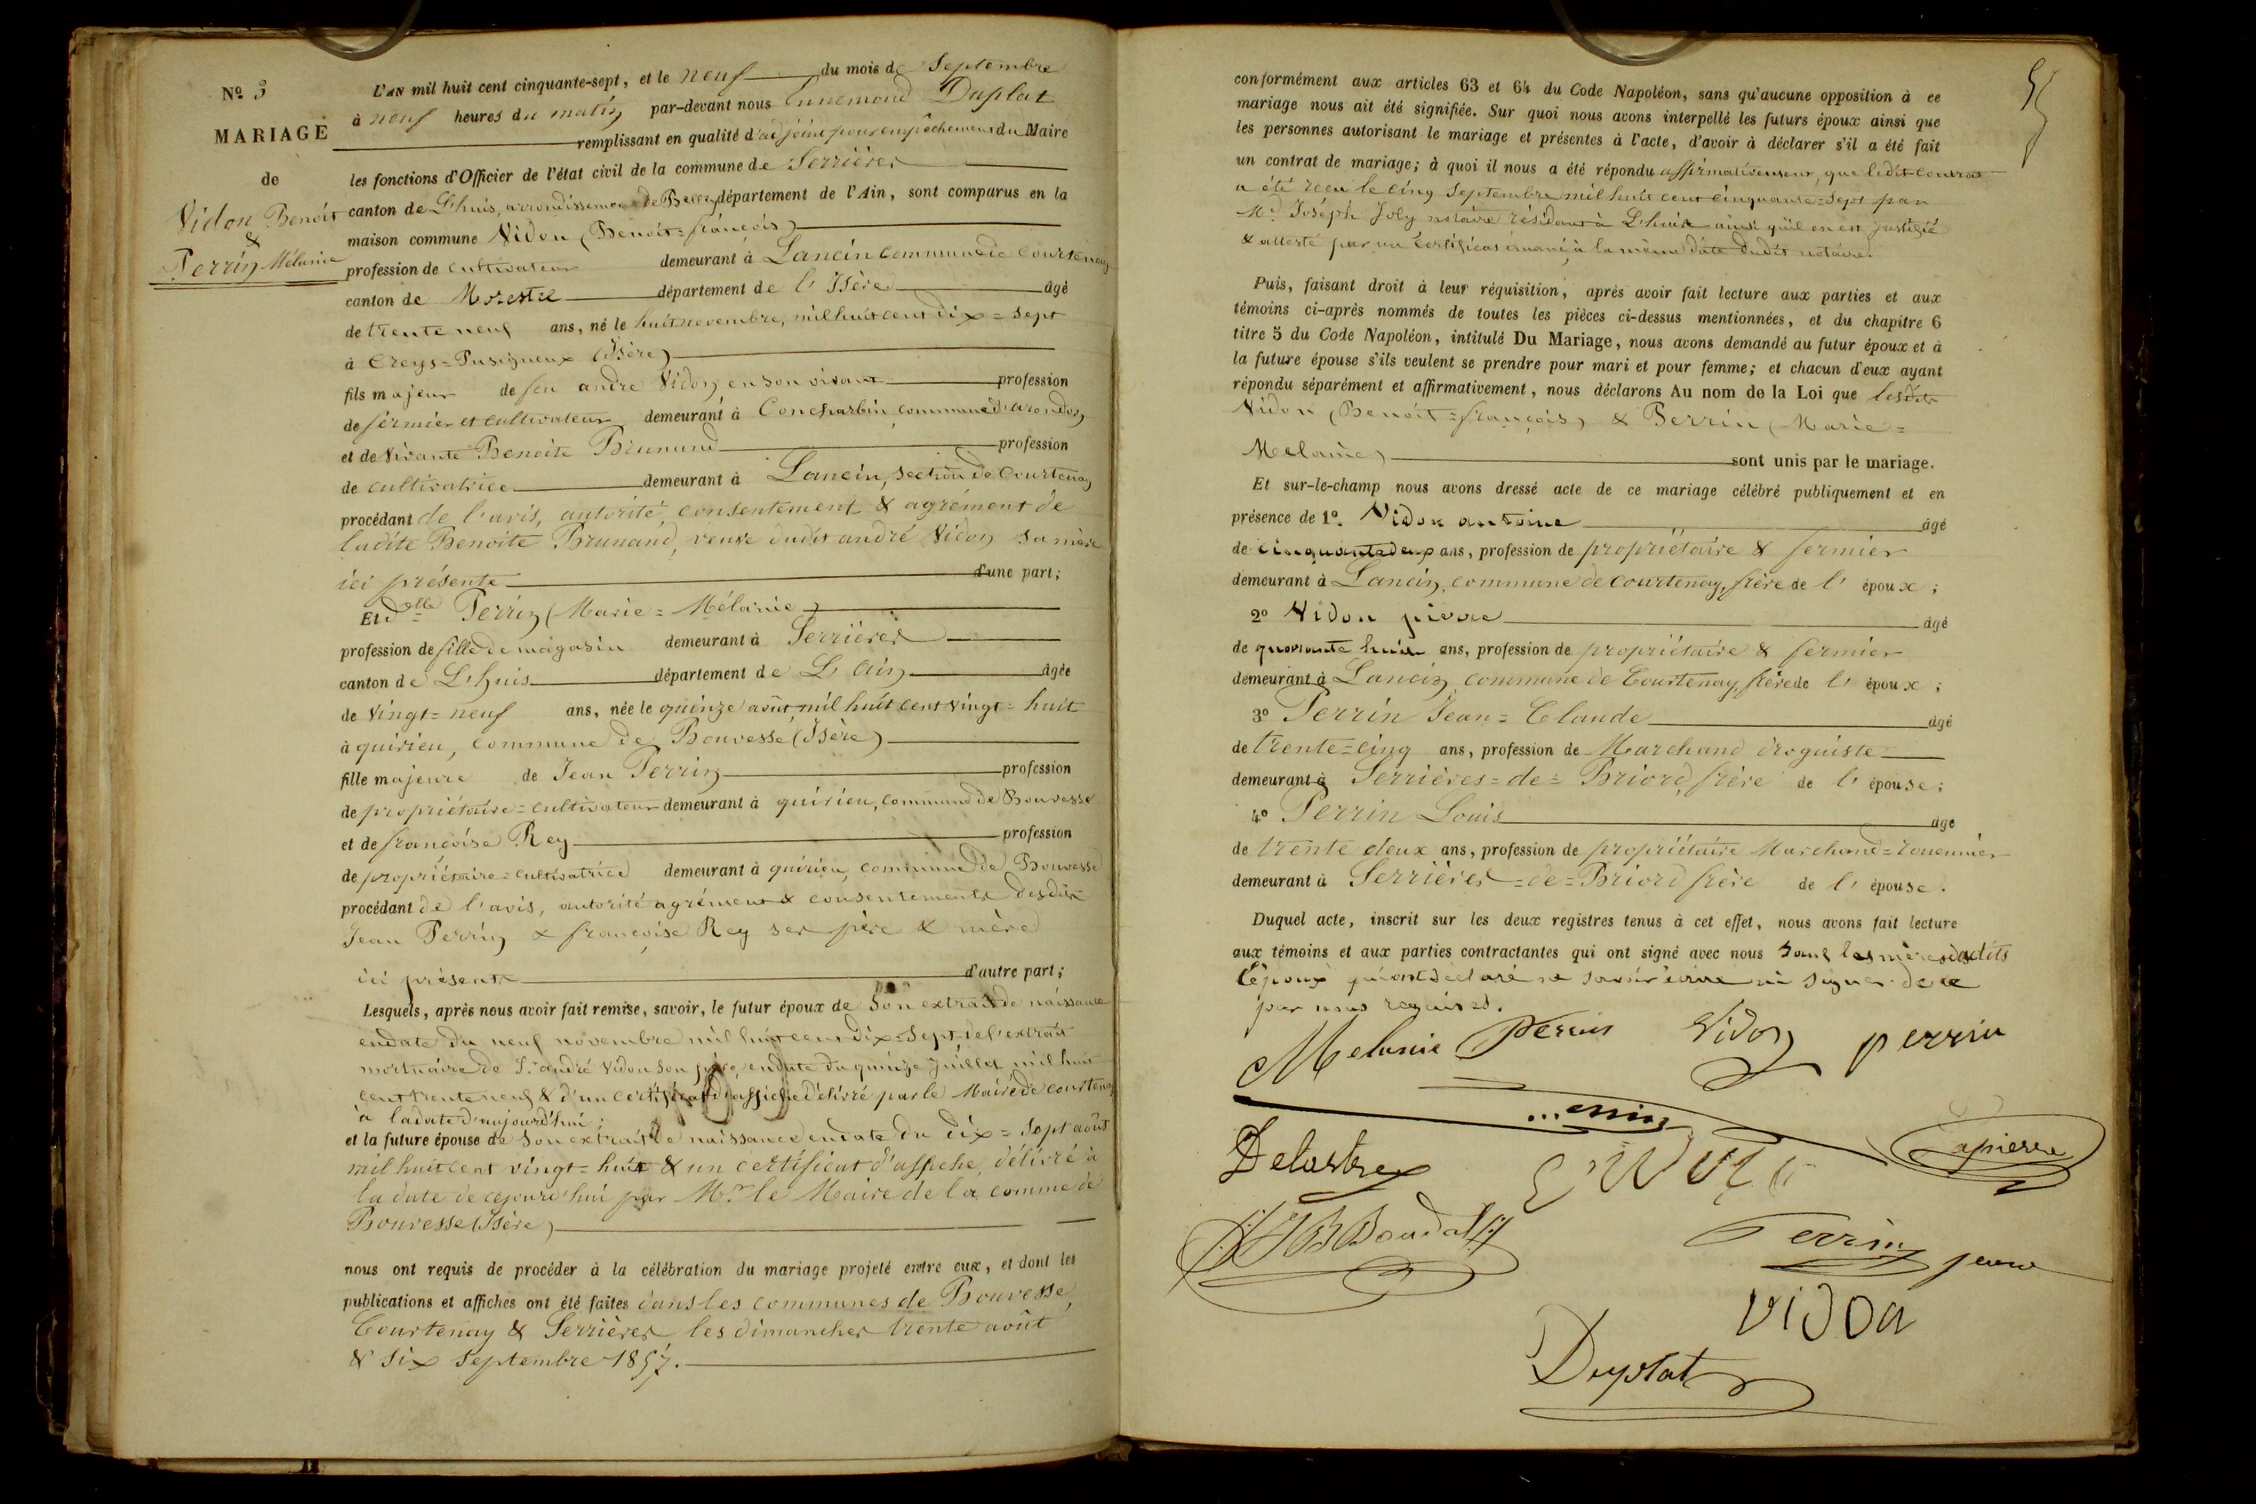 Nº 3
MARIAGE
de
Vidon Benoit
&
Perrin Mélanie
L'AN mil huit cent cinquante-sept, et le neuf du mois de Septembre
à neuf heures du matin par-devant nous Ennemond Duplat
remplissant en qualité d'adjoint pour empêchement du Maire
les fonctions d'Officier de l'état civil de la commune de Serrières
canton de Lhuis, arrondissement de Belley département de l'Ain, sont comparus en la
maison commune Vidon (Benoit=françois)
profession de cultivateur demeurant à Lancin commune de Courtenay
canton de Morestel département de l'Isère âgé
de trente neuf ans, né le huit novembre, mil huit cent dix=sept
à Creys=Pusigneux (Isère)
fils majeur de feu andré Vidon en son vivant profession
de fermier et cultivateur demeurant à Concharbin commune d'arandon
et de vivante Benoite Brunand profession
de cultivatrice demeurant à Lancin, section de Courtenay
procédant de l'avis, autorité, consentement & agrément de
ladite Benoite Brunand, veuve dudit andré Vidon sa mère
ici présente d'une part;
Et dlle Perrin (Marie=Mélanie)
profession de fille de magasin demeurant à Serrières
canton de Lhuis département de L'Ain âgée
de vingt=neuf ans, née le quinze août mil huit cent vingt=huit
à quirieu, commune de Bouvesse (Isère)
fille majeure de Jean Perrin profession
de propriétaire=cultivateur demeurant à quirieu, commune de Bouvesse
et de françoise Rey profession
de propriétaire=cultivatrice demeurant à quirieu, commune de Bouvesse
procédant de l'avis, autorité agrément & consentement desdits
Jean Perrin & françoise Rey ses père & mère
ici présents d'autre part;
Lesquels, après nous avoir fait remise, savoir, le futur époux de son extrait de naissance
en date du neuf novembre mil huit cent dix=sept, de l'extrait
mortuaire de Sr andré Vidon son père, en date du quinze juillet mil huit
cent trente neuf & d'un certificat d'affiche délivré par le Maire de Courtenay
à la date d'aujourd'hui;
et la future épouse de son extrait de naissance en date du dix=sept août
mil huit cent vingt=huit & un certificat d'affiche, délivré à
la date de cejourd'hui par Mr le Maire de la comme de
Bouvesse (Isère)
nous ont requis de procéder à la célébration du mariage projeté entre eux, et dont les
publications et affiches ont été faites dans les communes de Bouvesse,
Courtenay & Serrières les dimanches trente août
& six septembre 1857.
conformément aux articles 63 et 64 du Code Napoléon, sans qu'aucune opposition à ce
mariage nous ait été signifiée. Sur quoi nous avons interpellé les futurs époux ainsi que
les personnes autorisant le mariage et présentes à l'acte, d'avoir à déclarer s'il a été fait
un contrat de mariage; à quoi il nous a été répondu affirmativement, que ledit contrat
a été reçu le cinq Septembre mil huit cent cinquante=sept par
Me Joseph Joly notaire résidant à Lhuis ainsi qu'il en est justifié
& attesté par un certificat émané, à la même date dudit notaire.
Puis, faisant droit à leur réquisition, après avoir fait lecture aux parties et aux
témoins ci-après nommés de toutes les pièces ci-dessus mentionnées, et du chapitre 6
titre 5 du Code Napoléon, intitulé Du Mariage, nous avons demandé au futur époux et à
la future épouse s'ils veulent se prendre pour mari et pour femme; et chacun d'eux ayant
répondu séparément et affirmativement, nous déclarons Au nom de la Loi que lesdits
Vidon (Benoit=françois) & Perrin (Marie=
Mélanie) sont unis par le mariage.
Et sur-le-champ nous avons dressé acte de ce mariage célébré publiquement et en
présence de 1º. Vidon antoine âgé
de cinquante deux ans, profession de propriétaire & fermier
demeurant à Lancin, commune de Courtenay, frère de l'époux;
2º Vidon pierre âgé
de quarante huit ans, profession de propriétaire & fermier
demeurant à Lancin commune de Courtenay, frère de l'époux;
3º Perrin Jean=Claude âgé
de trente=cinq ans, profession de Marchand droguiste
demeurant à Serrières=de=Briord, frère de l'épouse;
4º Perrin Louis âgé
de trente deux ans, profession de propriétaire Marchand=rouennier
demeurant à Serrières=de=Briord frère de l'épouse.
Duquel acte, inscrit sur les deux registres tenus à cet effet, nous avons fait lecture
aux témoins et aux parties contractantes qui ont signé avec nous sauf les mères desdits
Epoux qui ont déclaré ne savoir écrire ni signer de ce
par nous requises.
Melanie Perrin Vidon perrin
Delastre Lapierre
JB Boudal
Perrin jeune
vidon
Duplat